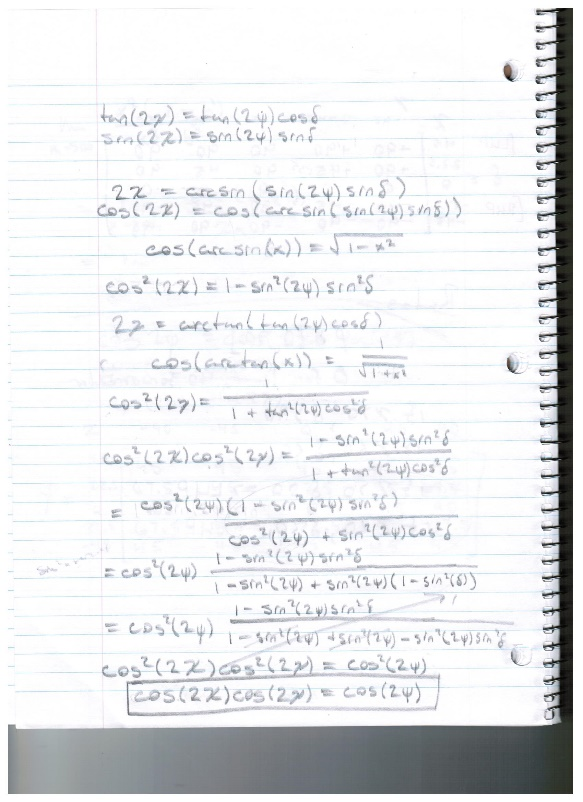 tan(2γ) = tan(2ψ)cosδ
sin(2χ) = sin(2ψ) sinδ
2χ = arcsin(sin(2ψ)sinδ)
cos(2χ) = cos(arcsin(sin(2ψ)sinδ))
cos(arcsin(x)) = √(1-x²)
cos²(2χ) = 1 - sin²(2ψ) sin²δ
2γ = arctan(tan(2ψ)cosδ)
cos(arctan(x)) = 1/√(1+x²)
cos²(2γ) = 1/(1 + tan²(2ψ)cos²δ)
cos²(2χ)cos²(2γ) = (1 - sin²(2ψ)sin²δ)/(1 + tan²(2ψ)cos²δ)
= cos²(2ψ)(1 - sin²(2ψ)sin²δ)/(cos²(2ψ) + sin²(2ψ)cos²δ)
= cos²(2ψ) (1 - sin²(2ψ)sin²δ)/(1 - sin²(2ψ) + sin²(2ψ)(1 - sin²(δ)))
= cos²(2ψ) (1 - sin²(2ψ)sin²δ)/(1 - sin²(2ψ) + sin²(2ψ) - sin²(2ψ)sin²δ) 1
cos²(2χ)cos²(2γ) = cos²(2ψ)
cos(2χ)cos(2γ) = cos(2ψ)